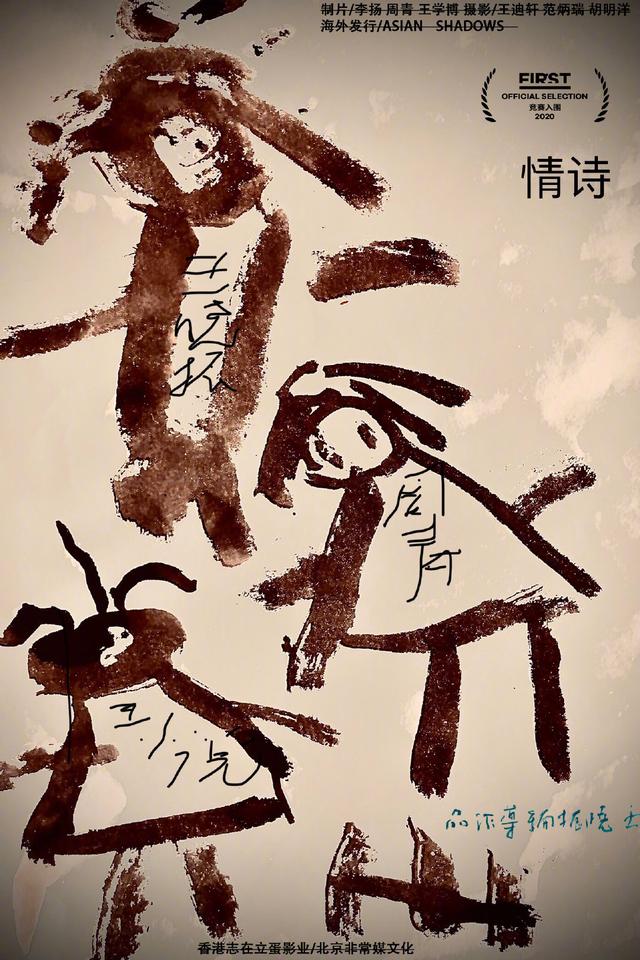 制片/李扬 周青 王学博 摄影/王迪轩 范炳瑞 胡明洋
海外发行/ASIAN SHADOWS
FIRST
OFFICIAL SELECTION
竞赛入围
2020
情诗
王晓振
周青
王小儿
王晓振编导作品
香港志在立蛋影业/北京非常媒文化